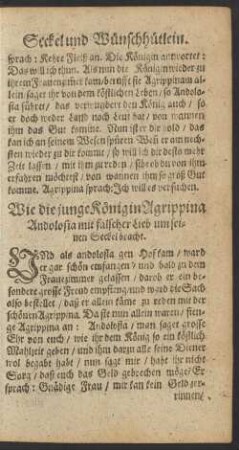 Seckel und Wünschhütlein.
sprach: Kehre Fleiß an. Die Königin antwortet:
Das will ich thun. Als nun die Königin wieder zu
ihrem Frauenzimer kam/berufft sie Agrippinam al-
lein/ saget ihr von dem köstlichen Leben/ so Andolo-
sia führet/ das verwundert den König auch/ so
er doch weder Land noch Leut hat/ von wannen
ihm das Gut komme. Nun ist er dir hold/ das
kan ich an seinem Wesen spühren
sten wieder zu dir komme/ so will ich dir desto mehr
Zeit lassen/ mit ihm zu reden/ ob du von ihm
erfahren möchtest/ von wannen ihm so groß Gut
komme. Agrippina sprach: Ich will es versuchen.
Wie die junge Königin Agrippina
Andolosia mit falscher Lieb um sei-
nen Seckel bracht.
UNd als andolosia gen Hof kam/ ward
er gar schön empfangen/ und bald zu dem
Frauenzimmer gelassen/ darob er ein be-
sondere grosse Freud empfieng/ und ward die Sach
also bestellet/ daß er allein käme zu reden mit der
schönen Agrippina. Da sie nun allein waren/ fien-
ge Agrippina an: Andolosia/ man saget grosse
Ehr von euch/ wie ihr dem König so ein köstlich
Mahlzeit geben/ und ihm darzu alle seine Diener
wol begabt habt/ nun sagt mir/ habt ihr nicht
Sorg/ daß euch das Geld gebrechen möge? Er
sprach: Gnädige Frau/ mir kan kein Geld zer-
rinnen/